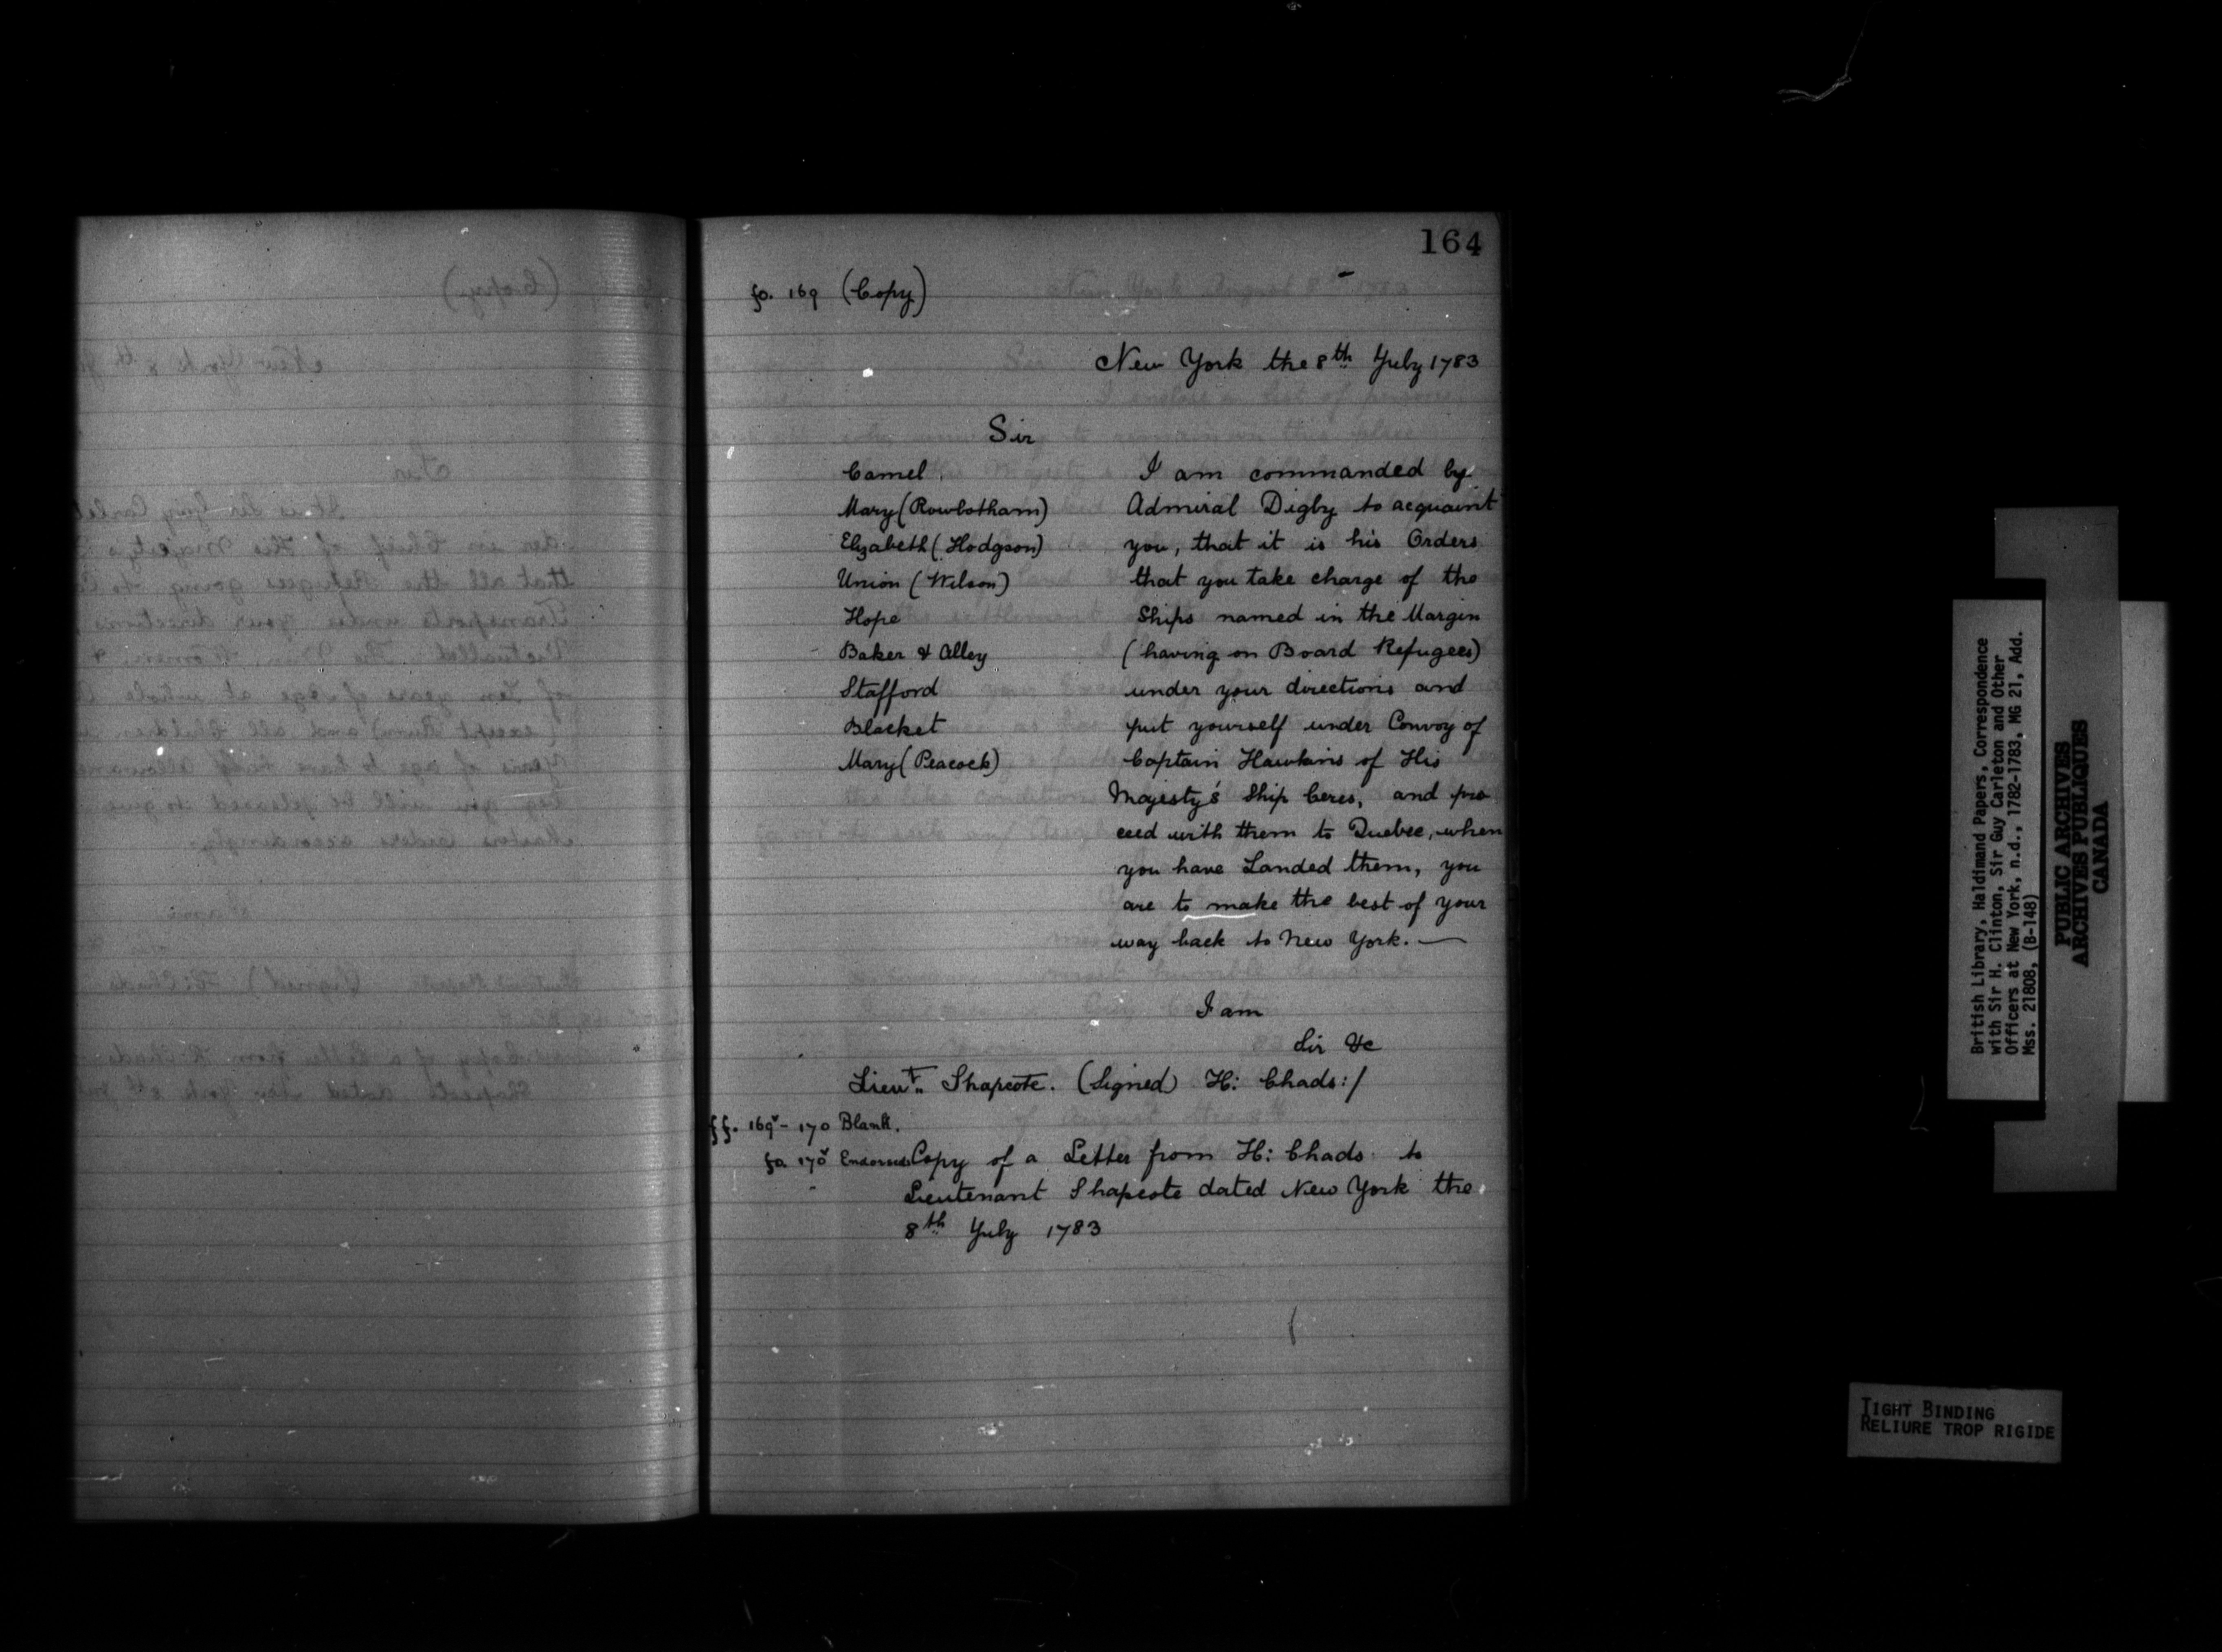 164
fo. 169 (Copy)
New York the 8th July 1783
Sir
Camel
Mary (Rowbotham)
Elizabeth (Hodgson)
Union (Wilson)
Hope
Baker & Alley
Stafford
Blacket
Mary (Peacock)
I am commanded by
Admiral Digby to acquaint
you, that it is his Orders
that you take charge of the
Ships named in the Margin
(having on Board Refugees)
under your directions and
put yourself under Convoy of
Captain Hawkins of His
Majesty's Ship Ceres, and pro
ceed with them to Quebec, when
you have Landed them, you
are to make the best of your
way back to New York. —
I am
Sir &c
Lieut. Shapcote. (Signed) H: Chads:/
ff. 169v - 170 Blank.
fo 170v Endorsed: Copy of a Letter from H: Chads to
Lieutenant Shapcote dated New York the
8th July 1783
British Library, Haldimand Papers, Correspondence
with Sir H. Clinton, Sir Guy Carleton and Other
Officers at New York, n.d., 1782-1783, MG 21, Add.
Mss. 21808, (B-148)
PUBLIC ARCHIVES
ARCHIVES PUBLIQUES
CANADA
TIGHT BINDING
RELIURE TROP RIGIDE